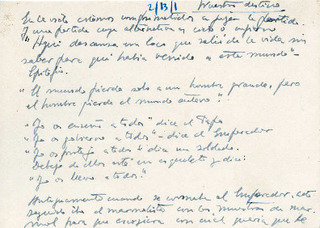 2/13/1 Nuestro destino
En la vida estamos comprometidos a jugar la partida.
Y una partida cuya alternativa es cielo o infierno
"Aquí descansa un loco que salió de la vida sin
saber para qué había venido a este mundo"-
Epitafio.
"El mundo pierde solo a un hombre grande, pero
el hombre pierde el mundo entero".
"Yo os enseño a todos" dice el Papa
"Yo os gobierno a todos" - dice el Emperador
"Yo os protejo a todos" dice un soldado.
Debajo de ellos está un esqueleto y dice:
"Yo os llevo a todos".
Antiguamente cuando se coronaba al Emperador, este
iba el marmolista con las muestras de mar-
mol para que escogiera con cuál quería que le